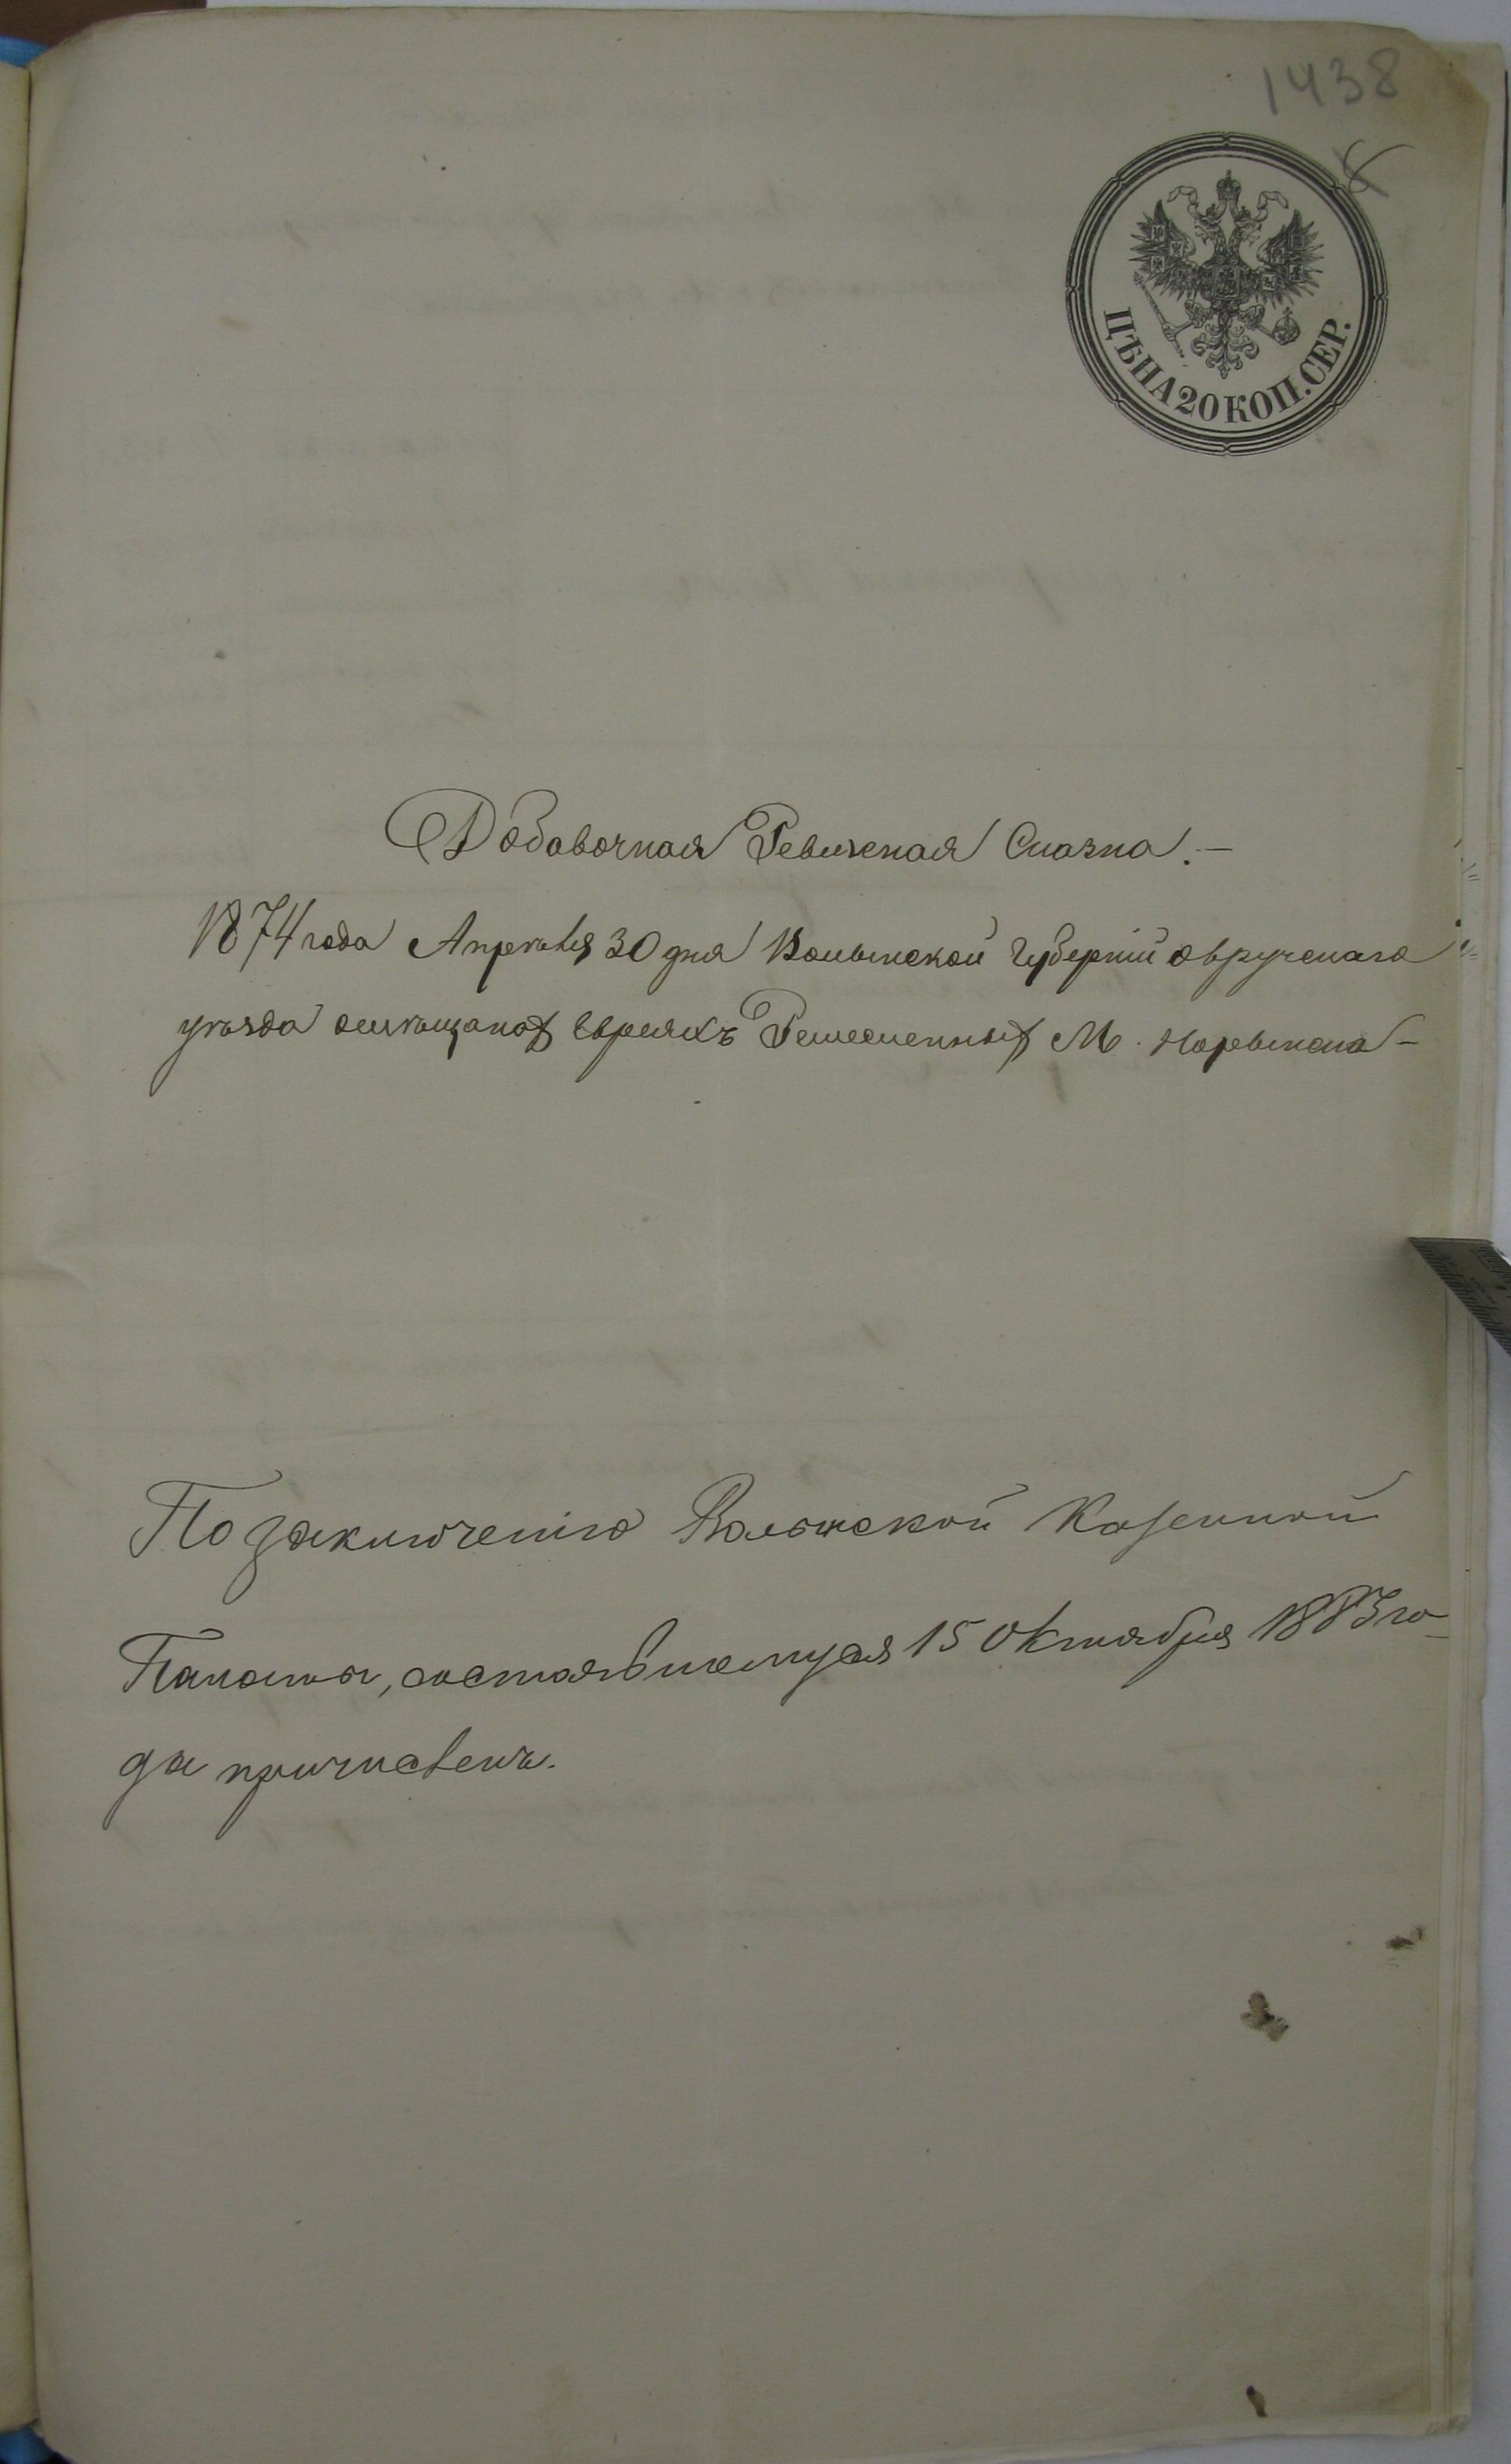 1438
ЦѢНА 20 КОП. СЕР.
Добавочная Ревизская Сказка.—
1874 года Апрѣля 30 дня Волынской Губерніи Овручскаго
уѣзда о мѣщанах Евреяхъ Ремесленных М. Норынска—
По заключенію Волынской Казенной
Палаты, состоявшемуся 15 Октября 1883 го-
да причислены.